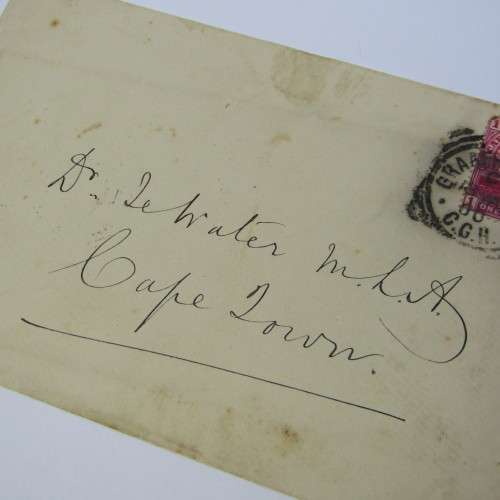 Dr. Te Water M.L.A.
Cape Town.
GRAA
C.G.H.